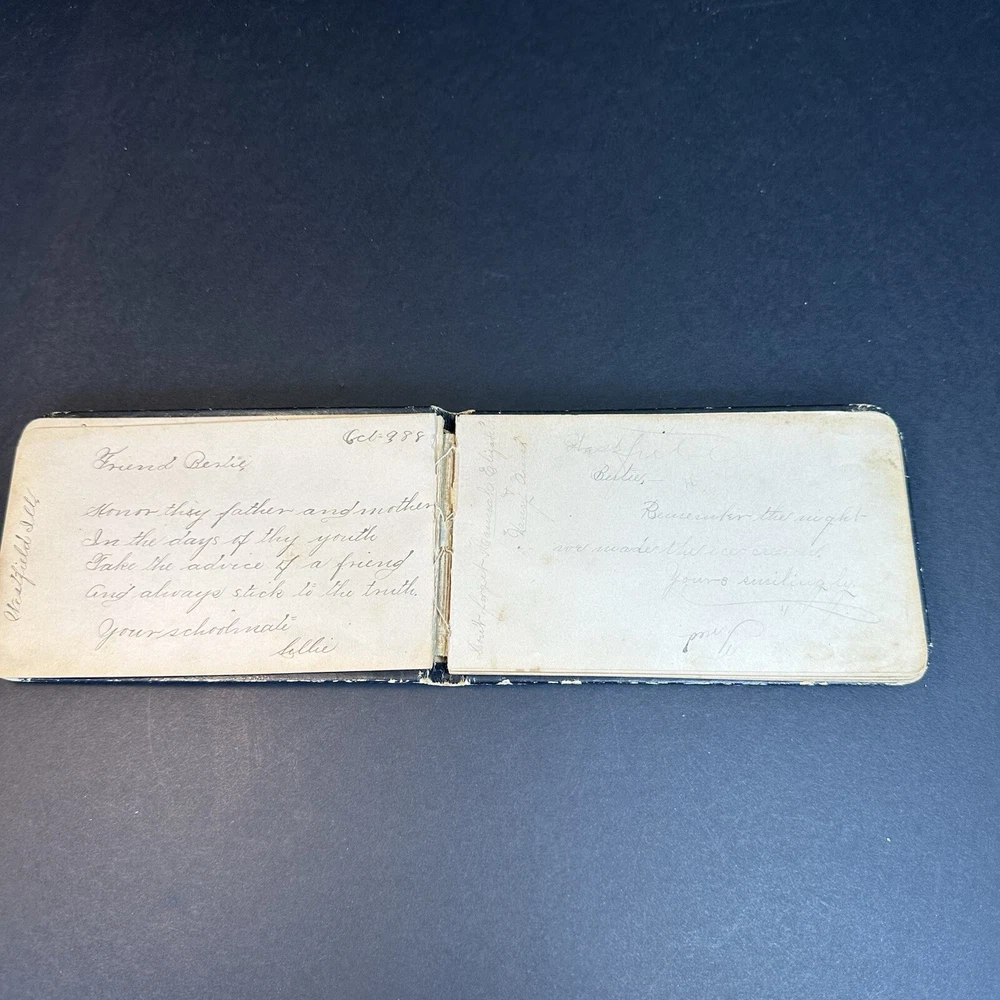 Oct-9 88
Friend Bertie
Honor thy father and mother
In the days of thy youth
Take the advice of a friend
And always stick to the truth.
Your schoolmate
Lillie
Westfield Ills
Westfield
Bertie,
Remember the night
we made the ice cream
Yours smilingly.
Don't forget